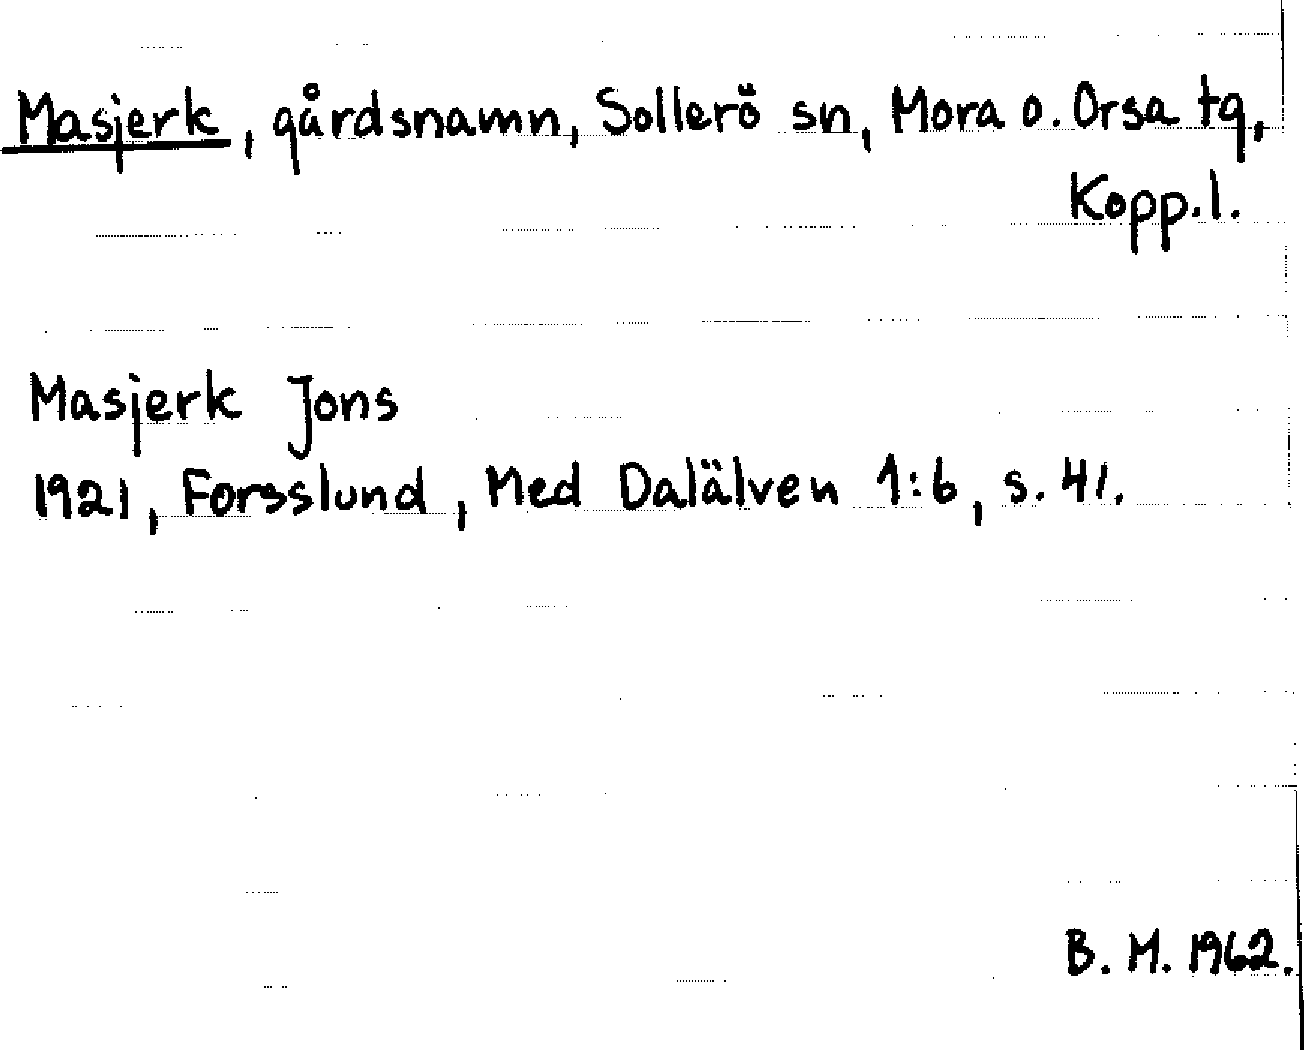 Masjerk, gårdsnamn, Sollerö sn, Mora o. Orsa tg,
Kopp.l.
Masjerk Jons
1921, Forsslund, Med Dalälven 1:6, s. 41.
B. M. 1962.